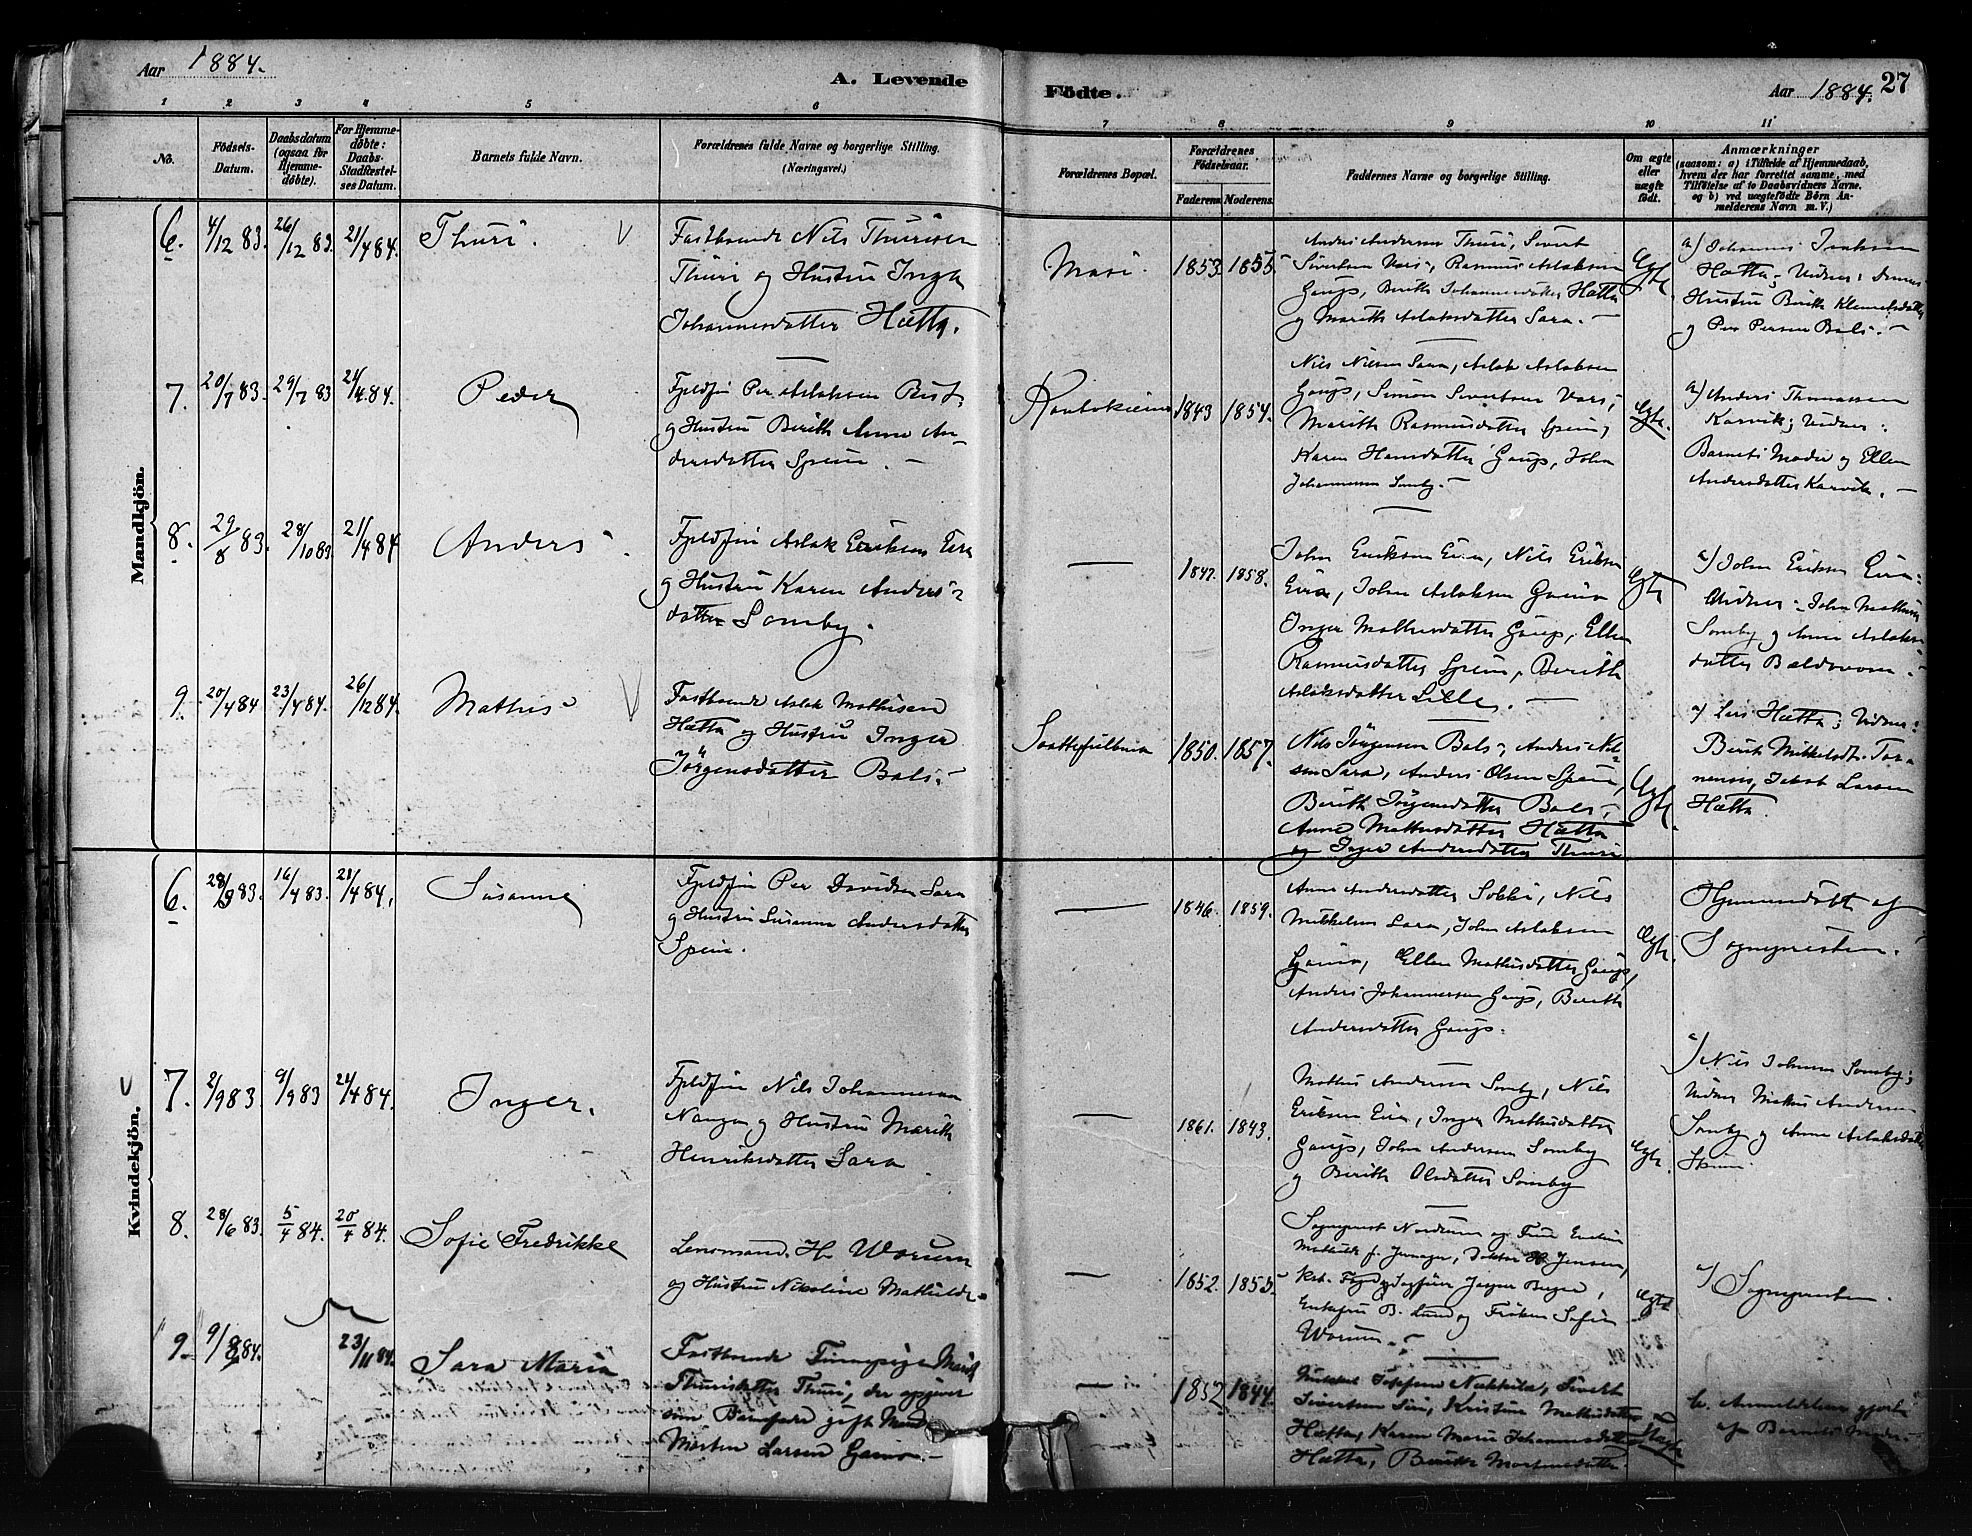 Aar 1884.
A. Levende
Födte.
Aar 1884.
27
1 2 3 4 5 6 7 8 9 10 11
No.
Födsels-
Datum.
Daabsdatum
(ogsaa for
Hjemme-
döbte).
For Hjemme-
döbte:
Daabs-
Stadfæstel-
ses Datum.
Barnets fulde Navn.
Forældrenes fulde Navne og borgerlige Stilling.
(Næringsvei.)
Forældrenes Bopæl.
Forældrenes
Födselsaar.
Faderens.
Moderens.
Faddernes Navne og borgerlige Stilling.
Om ægte
eller
uægte
födt.
Anmærkninger
(saasom: a) i Tilfælde af Hjemmedaab,
hvem der har forrettet samme, med
Tilföielse af to Daabsvidners Navne.
og b) ved uægtefödte Börn An-
melderens Navn m. V.)
Mandkjön.
6. 4/12 83. 26/12 83. 21/4 84. Thuri.
Fastboende Nils Thurisen
Thuri og Hustru Inga
Johannesdatter Hætta.
Masi. 1853. 1855
Anders Andersen Thuri, Sivert
Sivertsen Vars, Rasmus Aslaksen
Gaup, Berith Johannesdatter Hætta
og Marith Aslaksdatter Sara.
Ægte
a) Johannes Isaksen
Hætta; Vidner: Dennes
Hustru Berith Klemetsdatter
og Per Persen Bals.
7. 20/7 83. 29/7 83 21/4 84. Peder
Fjeldfin Per Aslaksen
og Hustru Berith Anne An-
dersdatter Spein.
Kautokeino 1843 1854.
Nils Nilsen Sara, Aslak Aslaksen
Gaup, Simon Sivertsen Vars,
Marith Rasmusdatter Spein,
Karen Hansdatter Gaup, John
Johannesen Somby.
Ægte.
a) Anders Thomassen
Karvik; Vidner:
Barnets Moder og Ellen
Andersdatter Karvik.
8. 29/8 83. 28/10 83. 21/4 84 Anders
Fjeldfin Aslak Eriksen Eira
og Hustru Karen Anders-
datter Somby.
1847. 1858.
John Eriksen Eira, Nils Eriksen
Eira, John Aslaksen Gaino
Inger Mathisdatter Gaup, Ellen
Rasmusdatter Spein, Berith
Aslaksdatter Lille.
Ægte
a) John Eriksen Eira
Vidner: John Mathisen
Somby og Anne Aslaks-
datter
9. 20/4 84 23/4 84. 26/12 84. Mathis
Fastboende Aslak Mathisen
Hætta og Hustru Inger
Jörgensdatter Bals.
1850. 1857.
Nils Jörgensen Bals, Anders Nil-
sen Sara, Anders Olsen Spein,
Berith Jörgensdatter Bals,
Anne Mathisdatter Hætta
og Inger Andersdatter Thuri
Ægte.
a) Lars Hætta; Vidner:
Berit Mikkelsdt. Tor-
nensis, Jakob Larsen
Hætta.
Kvindekjön.
6. 28/3 83. 16/4 83. 21/4 84. Susanne
Fjeldfin Per Davidsen Sara
og Hustru Susanna Andersdatter
Spein.
1846. 1859.
Anne Andersdatter Sokki, Nils
Mikkelsen Sara, John Aslaksen
Gaino, Ellen Mathisdatter Gaup,
Anders Johannesen Gaup, Berith
Andersdatter Gaup.
Ægte.
Hjemmedöbt af
Sognepresten.
7. 2/9 83. 9/9 83 21/4 84. Inger.
Fjeldfin Nils Johannesen
Nango og Hustru Marith
Henriksdatter Sara
1861. 1843.
Mathis Andersen Somby, Nils
Eriksen Eira, Inger Mathisdatter
Gaup, John Andersen Somby
og Berith Olsdatter Somby
Ægte.
a) Nils Johnsen Somby;
Vidner Mathis Andersen
Somby og Anne Aslaksdatter
8. 28/6 83. 5/4 84. 20/4 84. Sofie Fredrikke
Lensmand H. Worum
og Hustru Nikoline Mathilde
1852. 1855
Sogneprest Nordrum og Frue
Mathilde f. Doktor H. Jensen,
B. Lund og Fröken Sofie
Worum.
Ægte
a) Sognepresten.
9. 9/8 84. 23/11 84. Sara Maria
Fastboende Finnepige Marit
Thurisdatter Thuri, der opgiver
som Barnefader gift Mand
Morten Larsen Gaino.
1852 1844.
Mikkel Josefsen Nikkila, Sivert
Sivertsen Siri, Kristine Mathisdatter
Hætta, Karen Marie Johannesdatter
Hætta, Mortensdatter
Uægte
b. Anmeldelsen gjort
af Barnets Moder